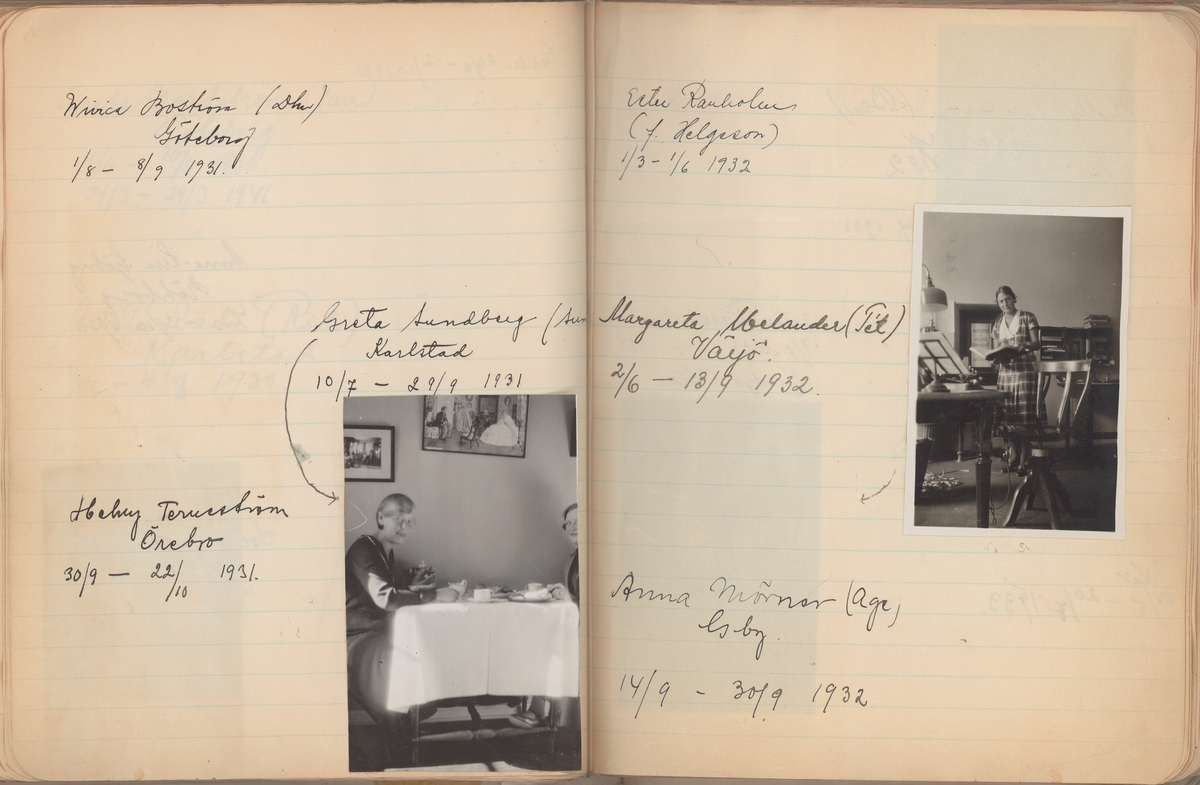 Wivica Boström (Dhw)
Göteborg
1/8 – 8/9 1931.
Greta Sundberg (Sun
Karlstad
10/7 – 29/9 1931
Ternström
Örebro
30/9 – 22/10 1931.
Ester Ranholm
(f. Helgeson)
1/3 – 1/6 1932
Margareta Melander (Tét)
Växjö.
2/6 – 13/9 1932.
Anna Mörner (Age)
Esby.
14/9 – 30/9 1932